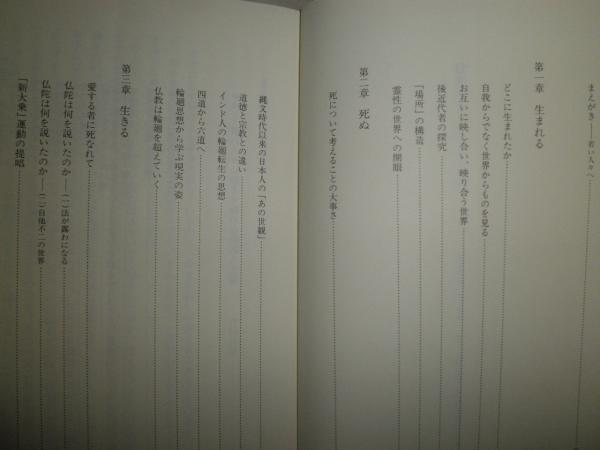 まえがき——若い人々へ
第一章 生まれる
どこに生まれたか
自我からでなく世界からものを見る
お互いに映し合い、映り合う世界
後近代者の探究
「場所」の構造
霊性の世界への開眼
第二章 死ぬ
死について考えることの大事さ
縄文時代以来の日本人の「あの世観」
道徳と宗教との違い
インド人の輪廻転生の思想
四道から六道へ
輪廻思想から学ぶ現実の姿
仏教は輪廻を超えていく
第三章 生きる
愛する者に死なれて
仏陀は何を説いたのか——(一)法が露わになる
仏陀は何を説いたのか——(二)自他不二の世界
「新大乗」運動の提唱